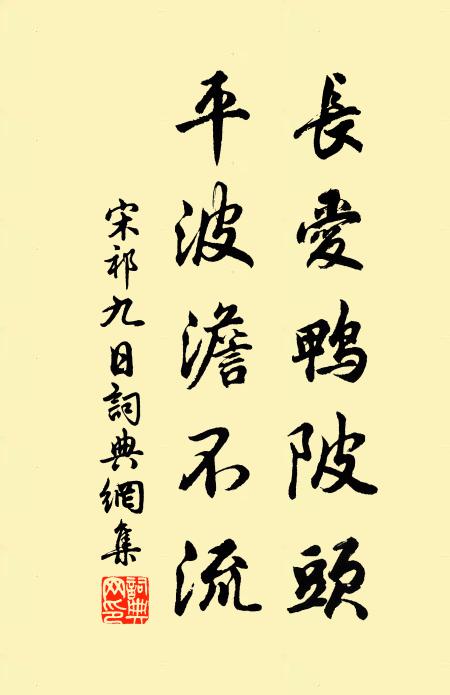 長愛鴨陂頭
平波澹不流
宋祁九日詞典網集
詞典網印